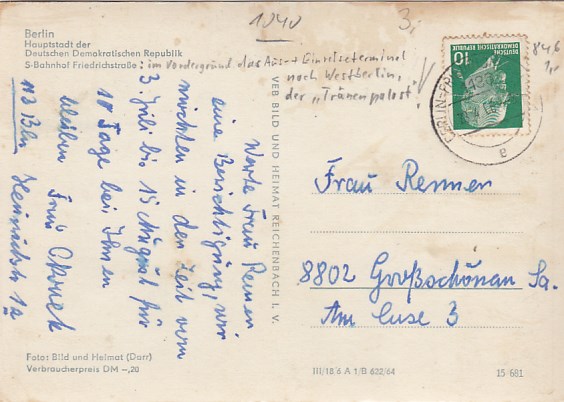 1040
3,-
Berlin
Hauptstadt der
Deutschen Demokratischen Republik
S-Bahnhof Friedrichstraße : im Vordergrund das Aus- + Einreiseterminal
nach Westberlin,
der „Tränenpalast"!
846
1,-
DEUTSCHE DEMOKRATISCHE REPUBLIK
10
BERLIN
a
Werte Frau Rennen
eine Berichtigung, wir
möchten in der Zeit vom
3. Juli bis 15 August für
18 Tage bei Ihnen
bleiben
Frau
113 Bln
12
VEB BILD UND HEIMAT REICHENBACH I. V.
Frau Rennen
8802 Großschönau Sa.
Am 3
Foto: Bild und Heimat (Darr)
Verbraucherpreis DM –,20
III/18 6 A 1/B 622/64
15 681